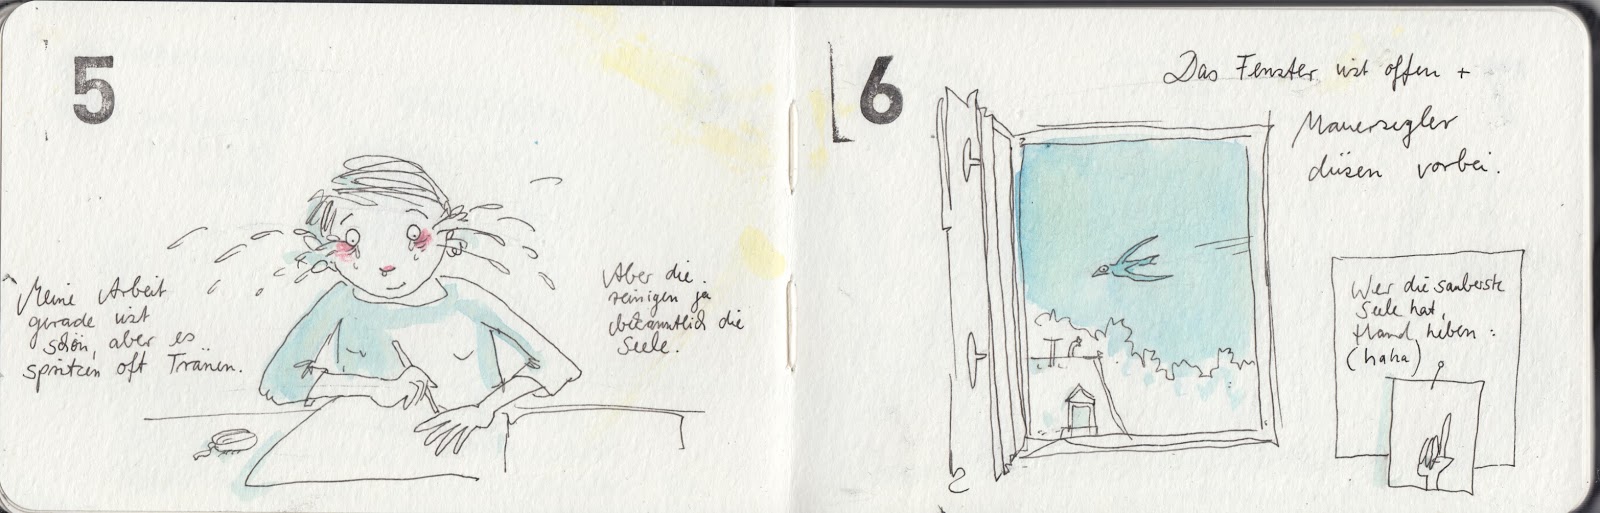 5
Meine Arbeit
gerade ist
schön, aber es
spritzen oft Tränen.
Aber die
reinigen ja
bekanntlich die
Seele.
6
Das Fenster ist offen +
Mauersegler
düsen vorbei.
Wer die sauberste
Seele hat,
Hand heben:
(haha)